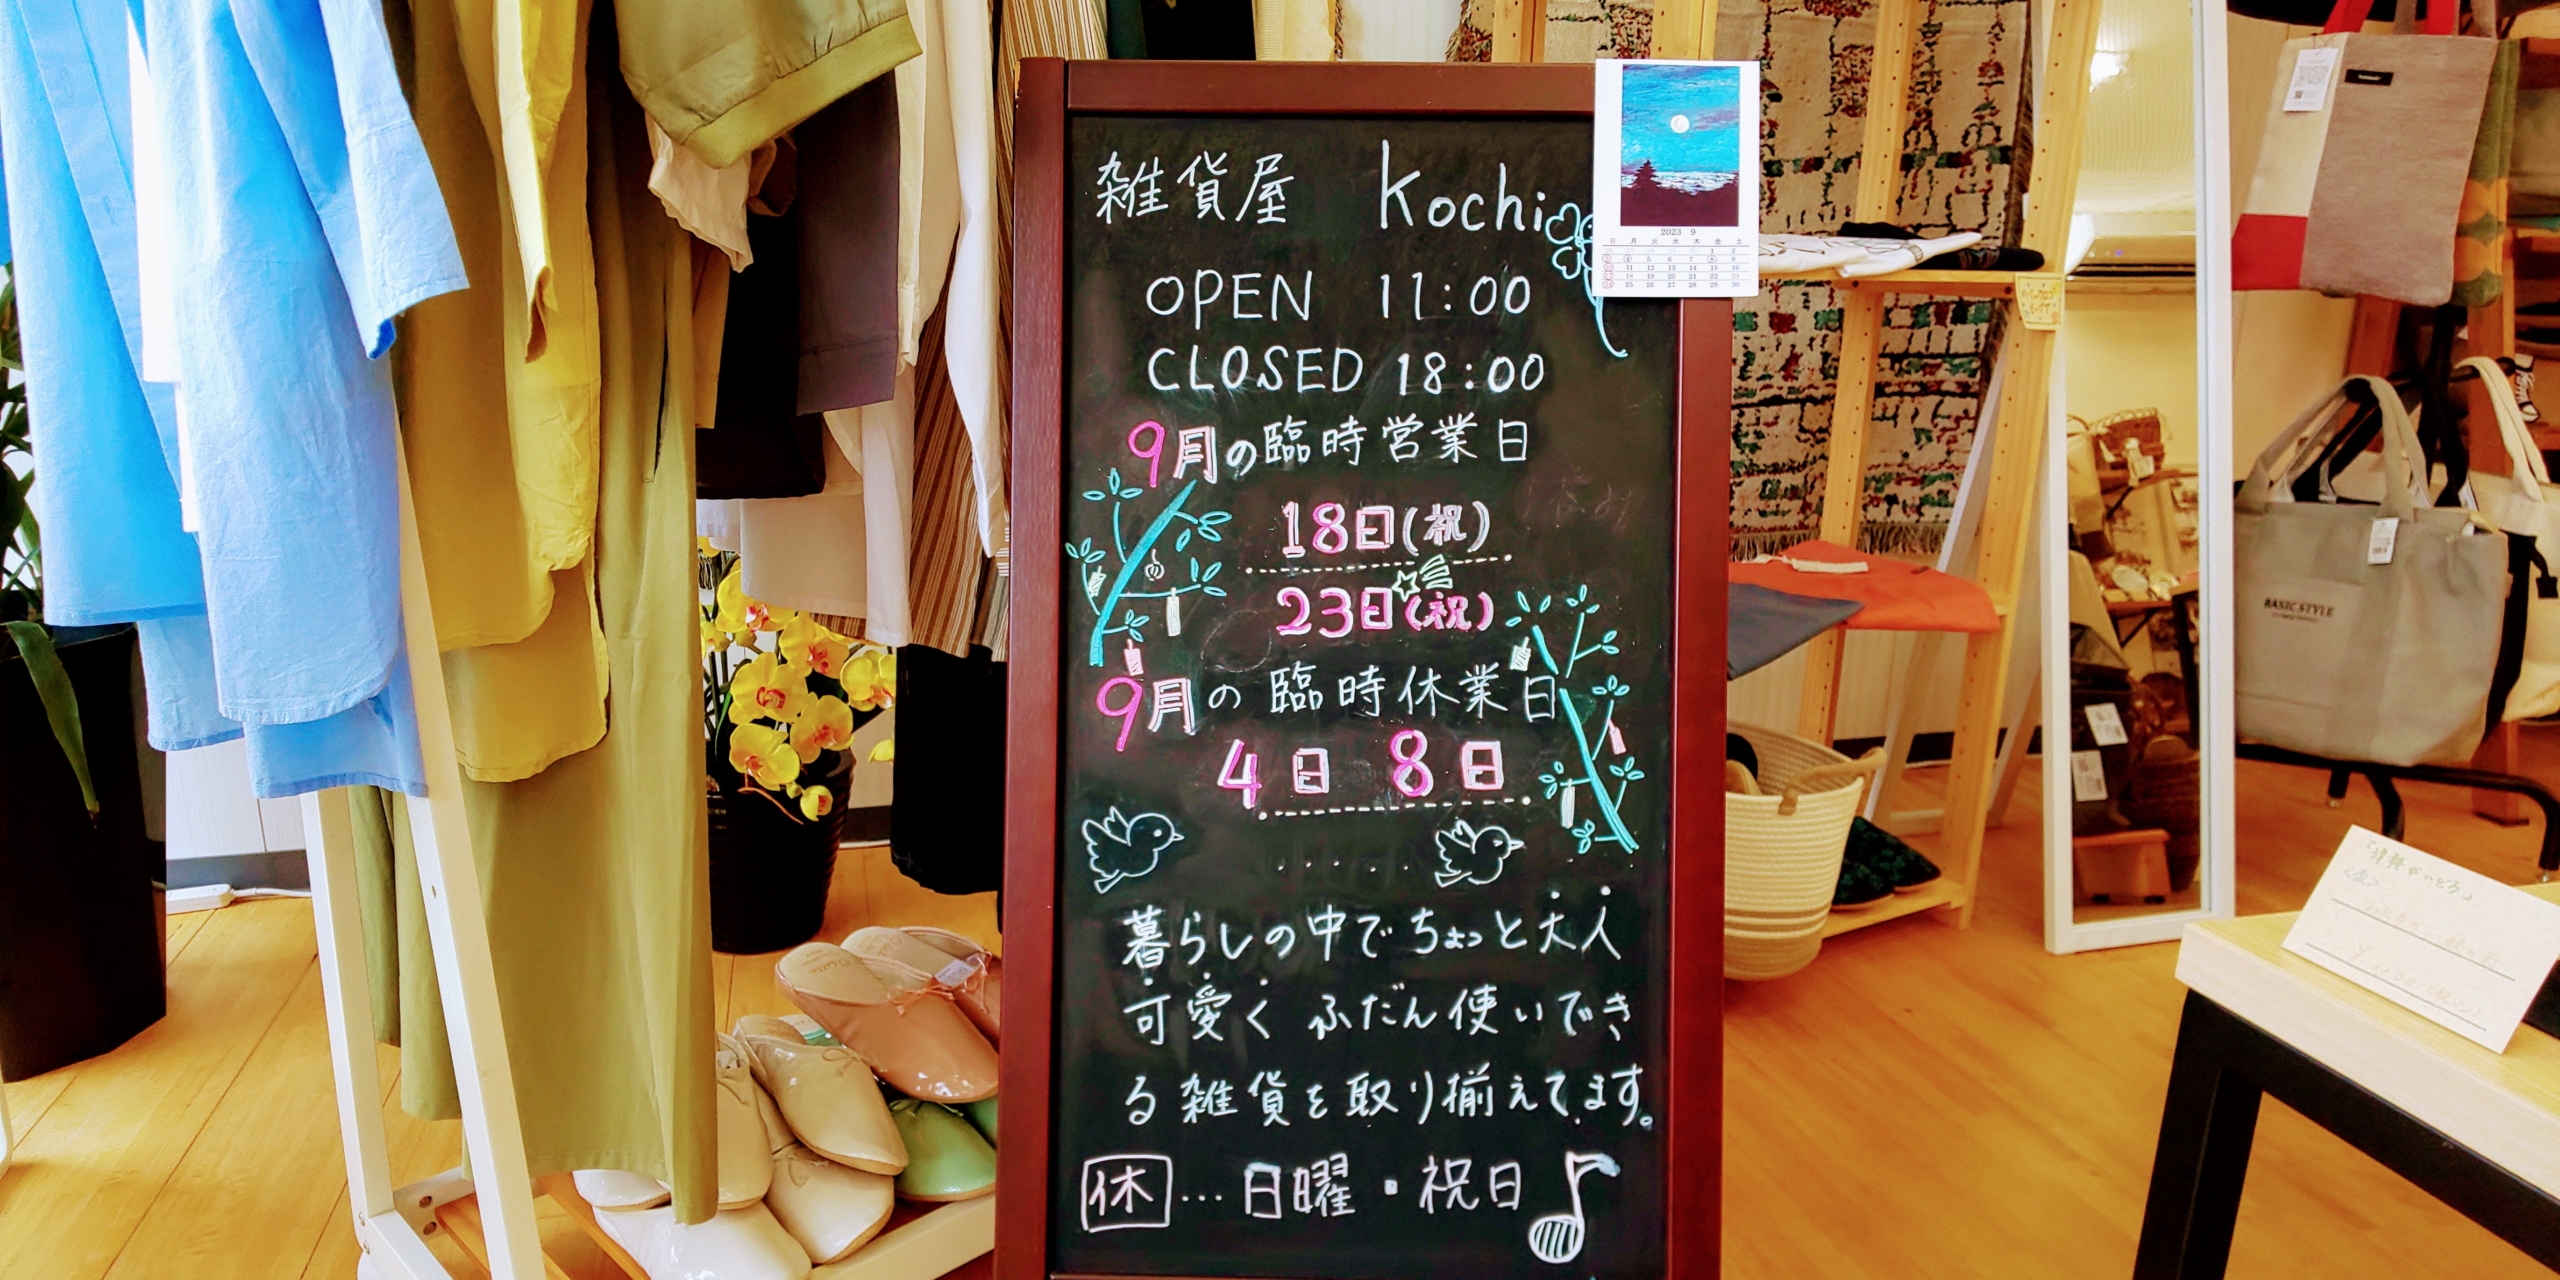 雑貨屋 Kochi
OPEN 11:00
CLOSED 18:00
9月の臨時営業日
18日(祝)
23日(祝)
9月の臨時休業日
4日 8日
暮らしの中でちょっと大人
可愛く ふだん使いでき
る雑貨を取り揃えてます。
休…日曜・祝日
2023 9
日 月 火 水 木 金 土
BASIC STYLE